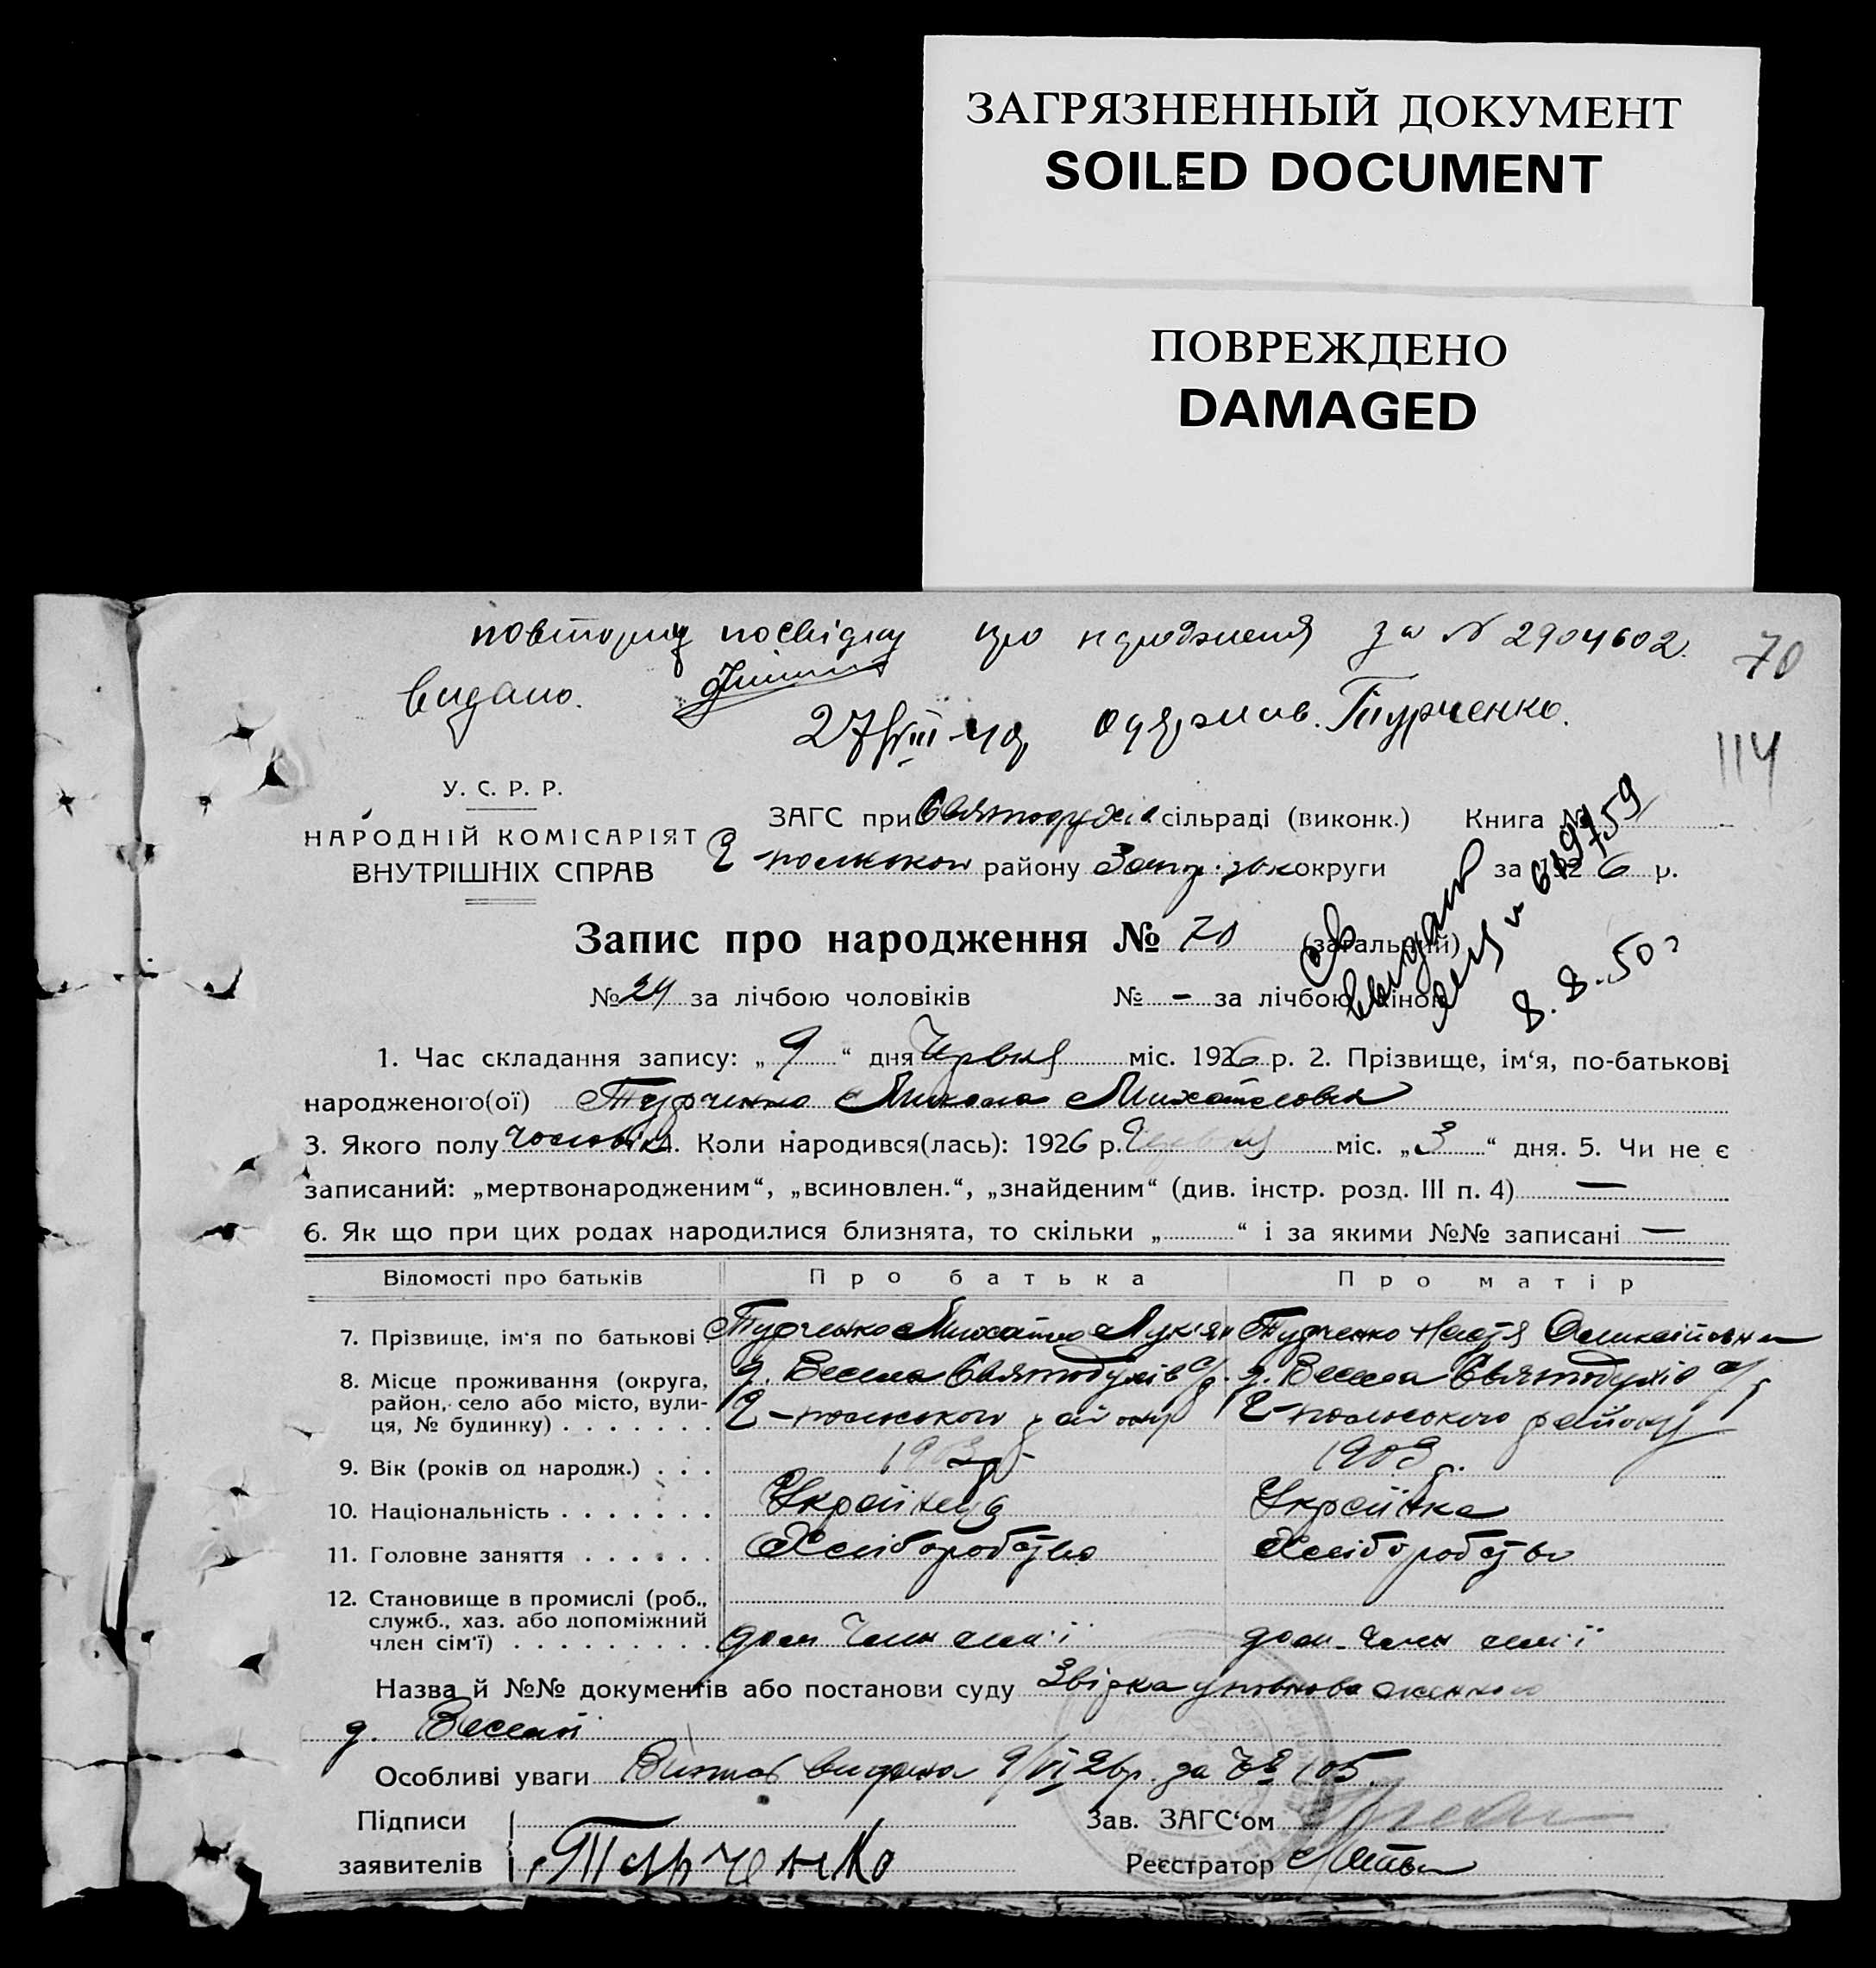 ЗАГРЯЗНЕННЫЙ ДОКУМЕНТ
SOILED DOCUMENT
ПОВРЕЖДЕНО
DAMAGED
повторну посвідку про народження за № 2904602. 70
видано.
27/VIII-40р. одержав. Турченко.
114
У. С. Р. Р.
НАРОДНІЙ КОМІСАРІЯТ
ВНУТРІШНІХ СПРАВ
ЗАГС при Святодухів сільраді (виконк.) Книга №
району Запоріж округи за 1926 р.
Запис про народження № 70 (загальний)
№ 24 за лічбою чоловіків № - за лічбою жінок
8.8.50 г
1. Час складання запису: „9“ дня Червня міс. 1926 р. 2. Прізвище, ім‘я, по-батькові
народженого(ої) Турченко Микола Михайлович
3. Якого полу чоловік 4. Коли народився(лась): 1926 р. Червня міс. „3“ дня. 5. Чи не є
записаний: „мертвонародженим“, „всиновлен.“, „знайденим“ (див. інстр. розд. III п. 4) —
6. Як що при цих родах народилися близнята, то скільки „ “ і за якими №№ записані —
Відомості про батьків Про батька Про матір
7. Прізвище, ім‘я по батькові . Турченко Михайло Лук'ян Турченко Настя
8. Місце проживання (округа, д. Весела Святодухів с/р. д. Весела Святодухів с/р
район, село або місто, вули-
ця, № будинку) . . . . . . . району району
9. Вік (років од народж.) . . . 1903 р. 1903 р.
10. Національність . . . . . . . Українець Українка
11. Головне заняття . . . . . . Хліборобство Хліборобство
12. Становище в промислі (роб.,
служб., хаз. або допоміжний
член сім‘ї) . . . . . . . . . доп. член сім'ї доп. член сім'ї
Назва й №№ документів або постанови суду Звірка уповноваженного
д. Веселої
Особливі уваги Витяг видана 9/VI 26р. за № 105.
Підписи Зав. ЗАГС‘ом
заявителів Турченко Реєстратор